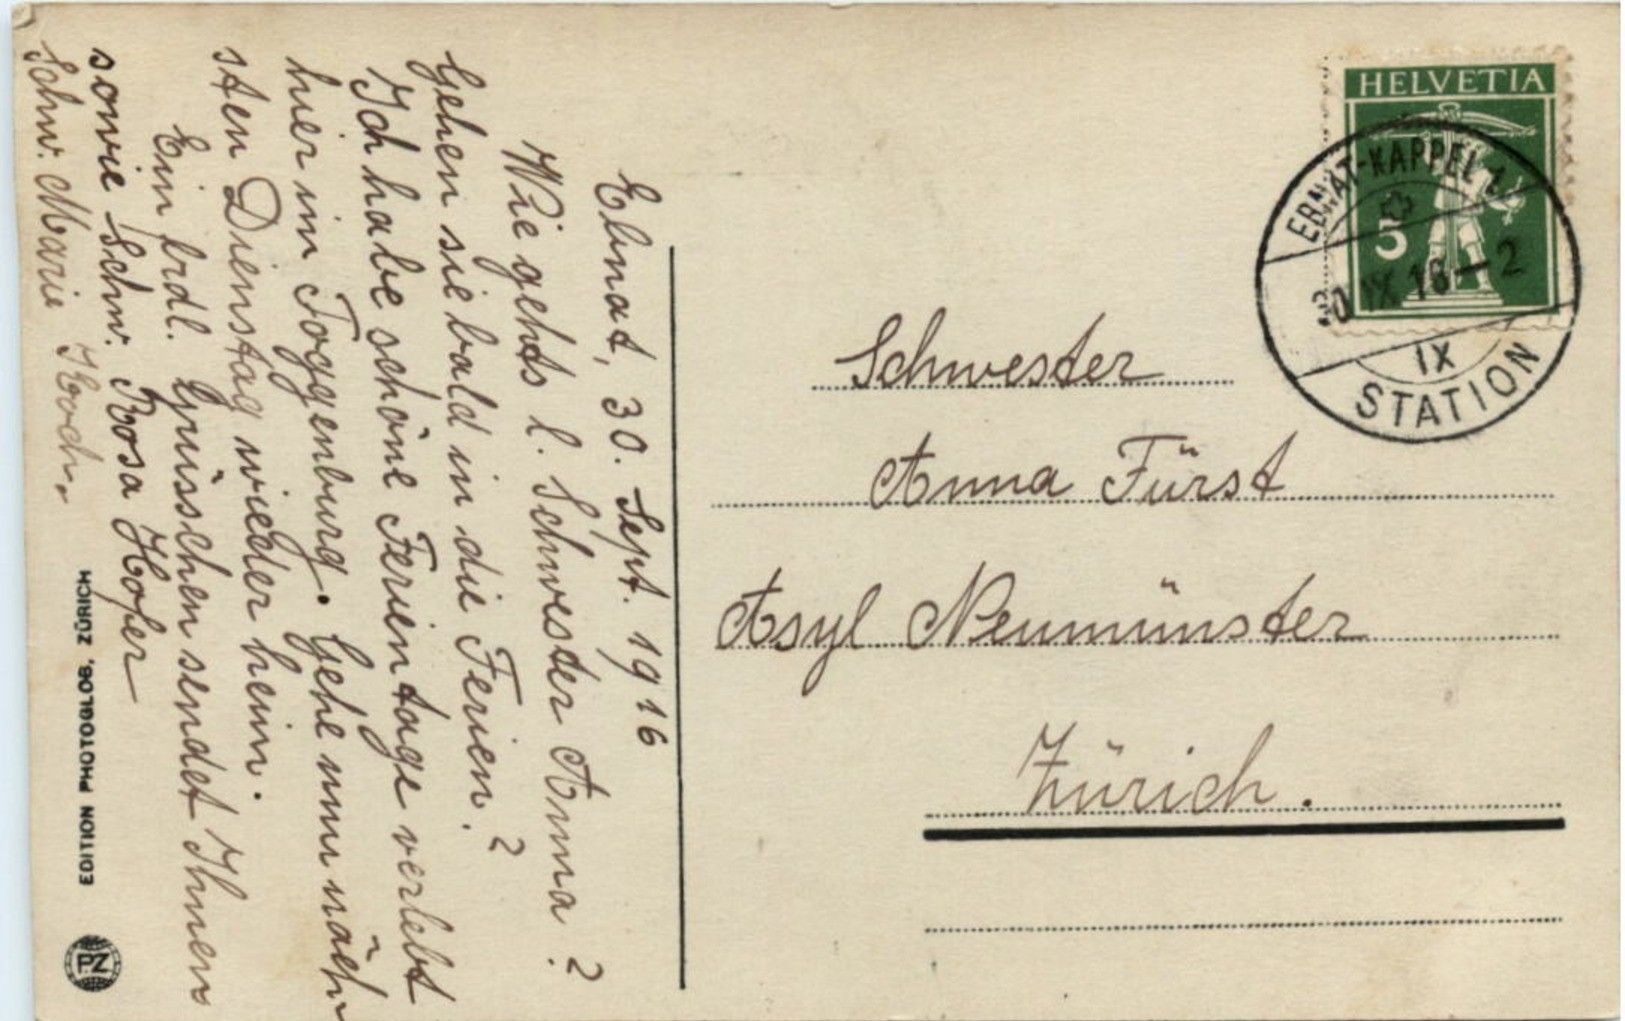 Ebnat, 30. Sept. 1916
Wie gehts l. Schwester Anna?
Gehen sie bald in die Ferien?
Ich habe schöne Ferientage verlebt
hier im Toggenburg. Gehe nun näch-
sten Dienstag wieder heim.
Ein frdl. Grüsschen sendet Ihnen
sowie Schw. Rosa Hofer
Schw. Marie Koch.
EDITION PHOTOGLOB, ZÜRICH
PZ
HELVETIA
5
EBNAT-KAPPEL
30 IX 16-2
IX
STATION
Schwester
Anna Fürst
Asyl Neumünster
Zürich.